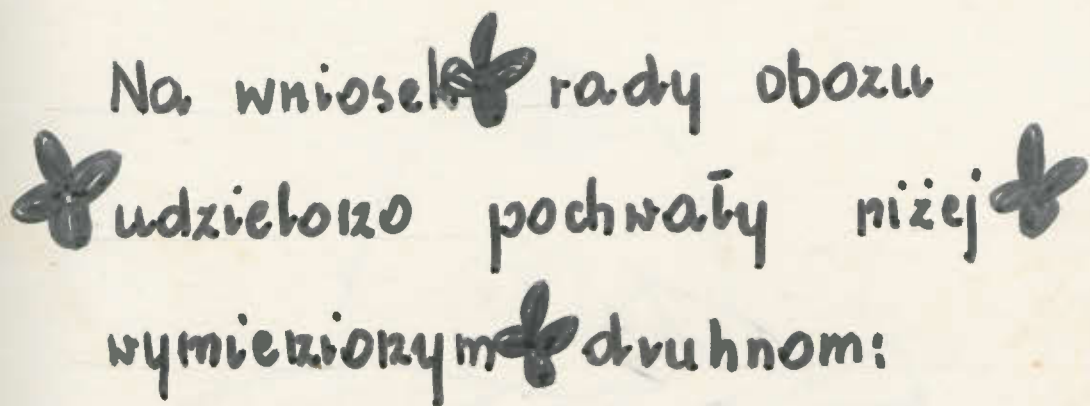 Na wniosek rady obozu
udzielono pochwały niżej
wymienionym druhnom: